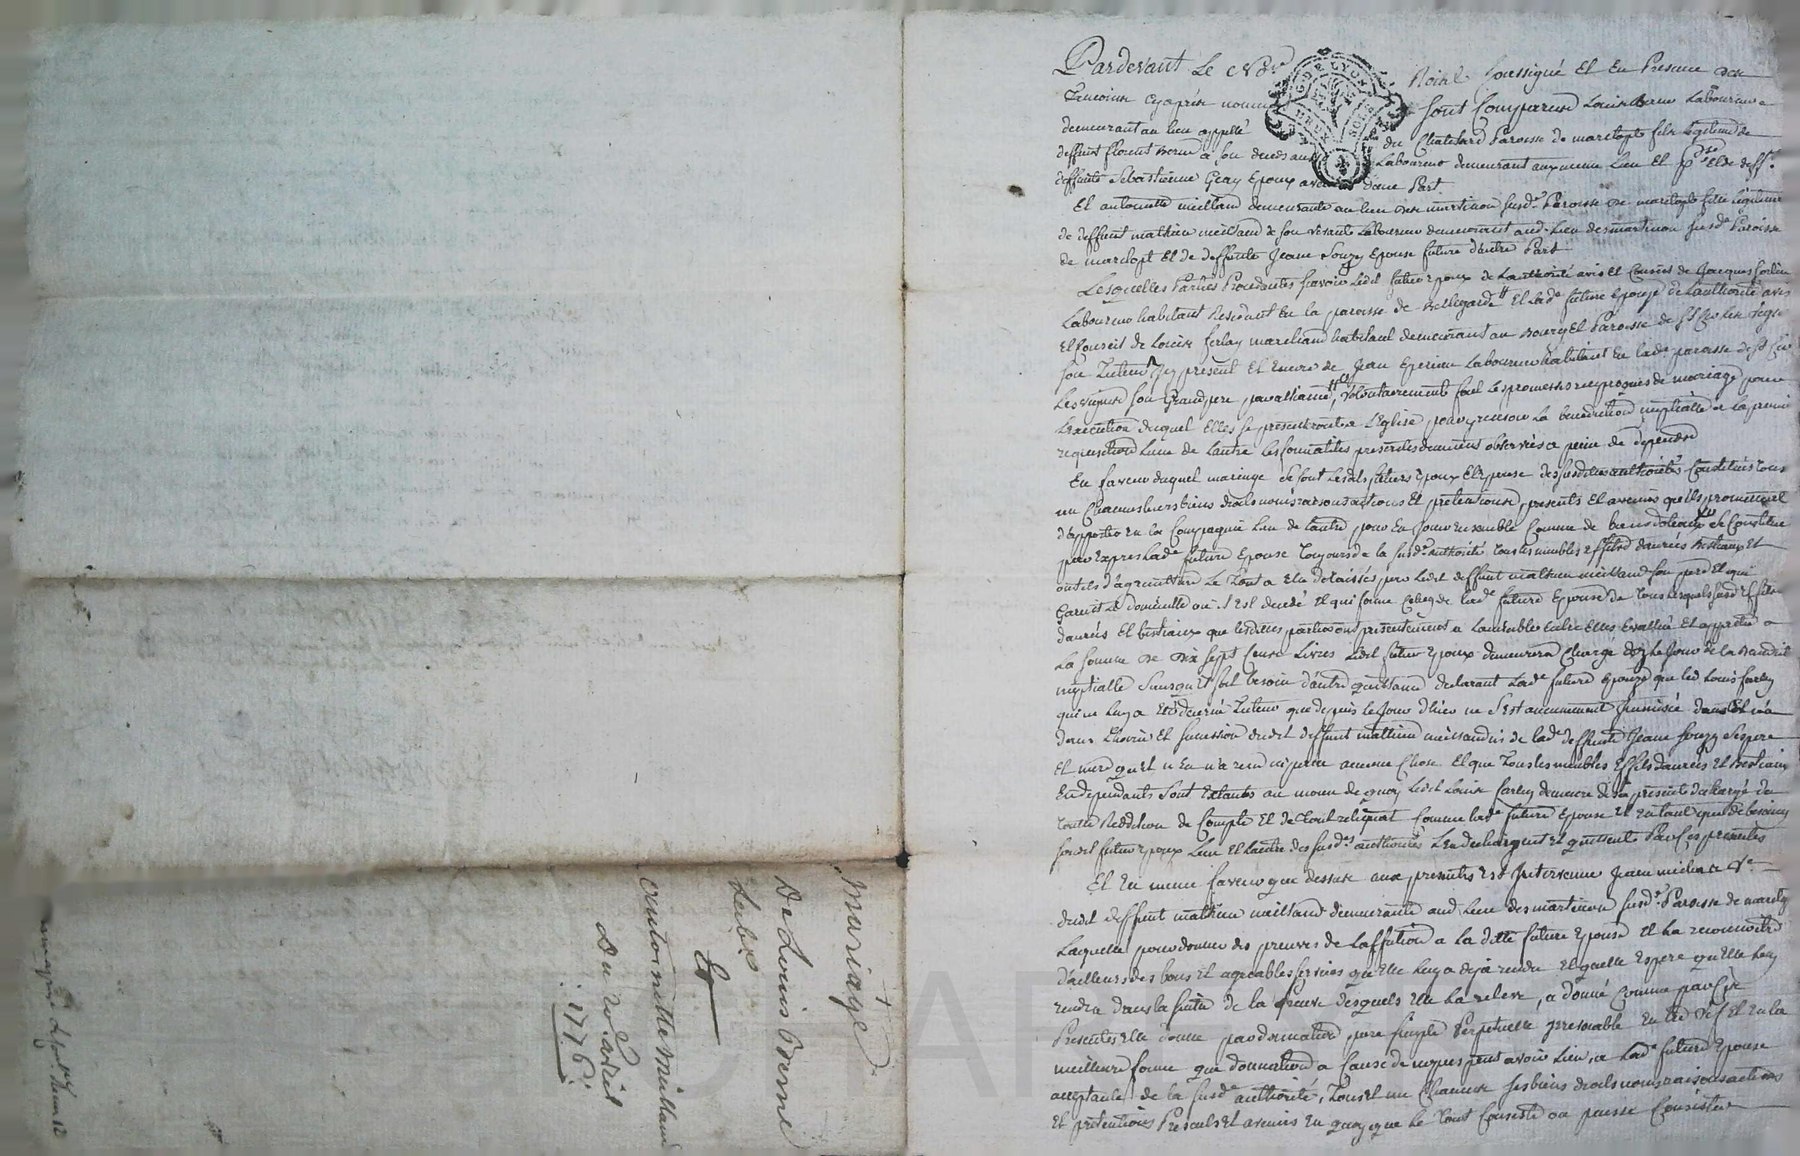 Mariage
De Louis Verne
Laber
Et
Antoinette Milland
Du 20 avril
1776
G DE LYON
DEUX SOLS
Pardevant Le No.re Roial Soussigné Et En Presence des
Temoins cyaprès nommés sont Comparus Louis Verne Laboureur
demeurant au lieu appellé du Chatelard Paroisse de marclopt fils légitime de
deffunt florent verne a son deceds Laboureur demeurant aux meme Lieu Et
deffunte Sebastienne Epoux avenir d'une Part
Et antoinette meilland demeurante au lieu des martinon susd.e Paroisse de marclopt fille légitime
de deffunt mathieu meilland a son vivant Laboureur demeurant aud. Lieu des martinon susd.e Paroisse
de marclopt Et de deffunte Jeane Souzy Epouse future d'autre Part
Lesquelles Parties Procedantes sçavoir Ledit futur Epoux de Lauthorité avis Et Conseil de Jacques
Laboureur habitant Residant En la paroisse de Bellegarde Et Lad.e future Epouse de Lauthorité avis
Et Conseil de Louis ferlay marchand habitant demeurant au Bourg Et Paroisse de
son Tuteur Icy présent Et Encore de Jean Laboureur habitant En lad.e paroisse de
Les vignes son Grandpere, volontairement fait Les promesses reciproques de mariage pour
L'execution duquel Elles se presenteront a L'Eglise pour y recevoir La benediction nuptialle a la premiere
requisition Lune de Lautre Les formalités prescrittes observées a peine de dépends
En faveur duquel mariage se sont Lesdits futurs Epoux Et Epouse des susdittes authorités Constitués tous
un Chacuns leurs biens droits noms raisons actions Et prétentions, presents Et avenirs qu'ils promettent
d'apporter En la Compagnie Lun de Lautre pour En jouir ensemble Comme de biens dotaux se Constitue
par Exprès Lad.e future Epouse Toujours de la susd.e authorité Tous les meubles Effets danrées Bestiaux Et
outils d'agriculture Le Tout a Elle delaissés par Ledit deffunt mathieu meilland son pere Et qui
Garnit Le domicille ou il s'est decedé Et qui forme Celuy de lad.e future Epouse de Tous Lesquels susd. Effets
danrées Et bestiaux que lesdittes parties ont presentement a Lamiable Entre Elles Evallué Et apprétié a
La somme de Dix sept Cents Livres Ledit futur Epoux demeurera Chargé dez Le Jour de la Benediction
nuptialle Sans qu'il soit besoin d'autre quittance declarant Lad.e future Epouse que led. Louis ferlay
qui ne Luy a Eté décerné Tuteur que depuis le Jour d'hier ne s'est aucunement Immiscé
dans L'hoirie Et succession dudit deffunt mathieu meilland ni de lad.e deffunte Jeane Souzy ses pere
Et mere qu'il n'En n'a reçu ni perçu aucune Chose Et que Tous les meubles Effets danrées Et Bestiaux
En dependants sont Extants au moyen de quoy Ledit Louis ferlay demeure des a présent déchargé de
Toutte Reddition de Compte Et de Tout reliquat Comme lad.e future Epouse Et En tant que de besoin
led. futur Epoux Lun Et Lautre des susd.es authorités L'En dechargent Et quittent Par Ces presentes
Et En meme faveur que dessus aux presentes Est Intervenue Jeane V.e
dudit deffunt mathieu meilland demeurante aud. Lieu des martinon susd.e Paroisse de marclopt
Laquelle pour donner des preuves de Laffection a La ditte future Epouse Et La reconnoitre
d'ailleurs des bons Et agréables services qu'Elle Luy a deja rendu Et quelle Espere qu'Elle Luy
rendra dans la suite de la preuve desquels Elle La releve, a donné Comme par Ces
Presentes Elle donne par donnation pure simple Perpetuelle Irrevocable Entre vifs Et En la
meilleure forme que donnation a Cause de nopces peut avoir lieu, a Lad.e future Epouse
acceptante de la susd.e authorité, Tous Et un Chacuns ses biens droits noms raisons actions
Et pretentions Presents et avenirs En quoy que Le Tout Consiste ou puisse Consister